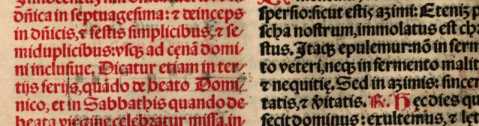 dñica in septuagesima: ⁊ deinceps
in dñicis, ⁊ festis simplicibus, ⁊ se-
miduplicibus: vsq; ad cęnã domi-
ni inclusiue. Dicatur etiam in ter-
tijs ferijs, quãdo de beato Domi-
nico, et in Sabbathis quando de
beata virgine celebratur missa in
spersio: sicut estis azimi: Etenim p
scha nostrum, immolatus est chr
stus. Itaq; epulemur: nõ in ferm
to veteri, neq; in fermento malit
⁊ nequitię. Sed in azimis: sincer
tatis, ⁊ v̄itatis. ℟. Hęc dies qu
fecit dominus: exultemus, ⁊ lęt